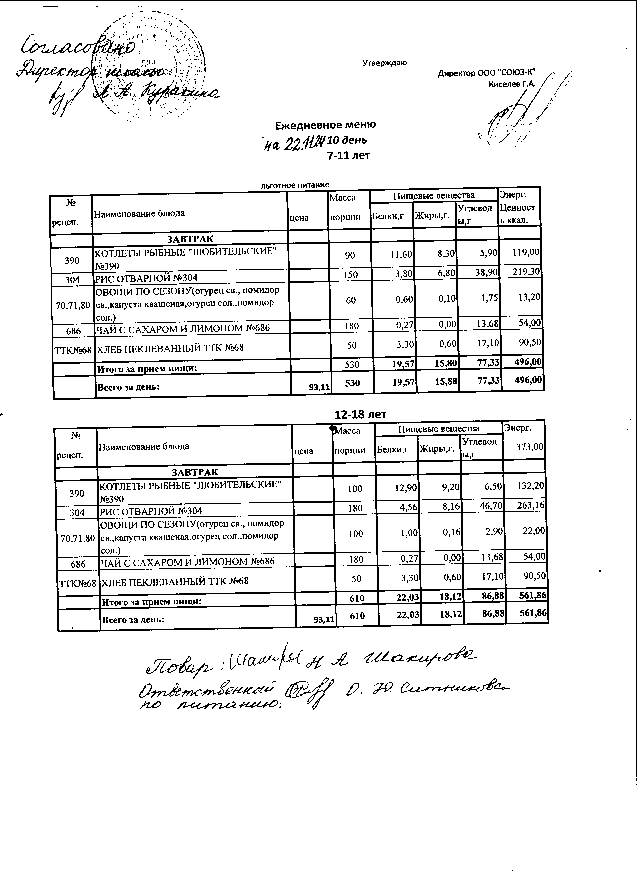 Согласовано
Директор школы
Л.А. Куракина
Утверждаю
Директор ООО "СОЮЗ-К"
Киселев Г.А.
Ежедневное меню
на 22.11.24 10 день
7-11 лет
льготное питание
№ рецеп. Наименование блюда цена Масса порции Пищевые вещества Энерг. Ценность ккал.
Белки,г Жиры,г. Углеводы,г
ЗАВТРАК
390 КОТЛЕТЫ РЫБНЫЕ "ЛЮБИТЕЛЬСКИЕ" №390 90 11,60 8,30 5,90 119,00
304 РИС ОТВАРНОЙ №304 150 3,80 6,80 38,90 219,30
70,71,80 ОВОЩИ ПО СЕЗОНУ(огурец св., помидор св.,капуста квашеная,огурец сол.,помидор сол.) 60 0,60 0,10 1,75 13,20
686 ЧАЙ С САХАРОМ И ЛИМОНОМ №686 180 0,27 0,00 13,68 54,00
ТТК№68 ХЛЕБ ПЕКЛЕВАННЫЙ ТТК №68 50 3,30 0,60 17,10 90,50
Итого за прием пищи: 530 19,57 15,80 77,33 496,00
Всего за день: 93,11 530 19,57 15,80 77,33 496,00
12-18 лет
№ рецеп. Наименование блюда цена Масса порции Пищевые вещества Энерг.
Белки,г Жиры,г. Углеводы,г 373,00
ЗАВТРАК
390 КОТЛЕТЫ РЫБНЫЕ "ЛЮБИТЕЛЬСКИЕ" №390 100 12,90 9,20 6,50 132,20
304 РИС ОТВАРНОЙ №304 180 4,56 8,16 46,70 263,16
70,71,80 ОВОЩИ ПО СЕЗОНУ(огурец св., помидор св.,капуста квашеная,огурец сол.,помидор сол.) 100 1,00 0,16 2,90 22,00
686 ЧАЙ С САХАРОМ И ЛИМОНОМ №686 180 0,27 0,00 13,68 54,00
ТТК№68 ХЛЕБ ПЕКЛЕВАННЫЙ ТТК №68 50 3,30 0,60 17,10 90,50
Итого за прием пищи: 610 22,03 18,12 86,88 561,86
Всего за день: 93,11 610 22,03 18,12 86,88 561,86
Повар: Н А Шакирова
Ответственный О. Ю. Ситникова
по питанию: